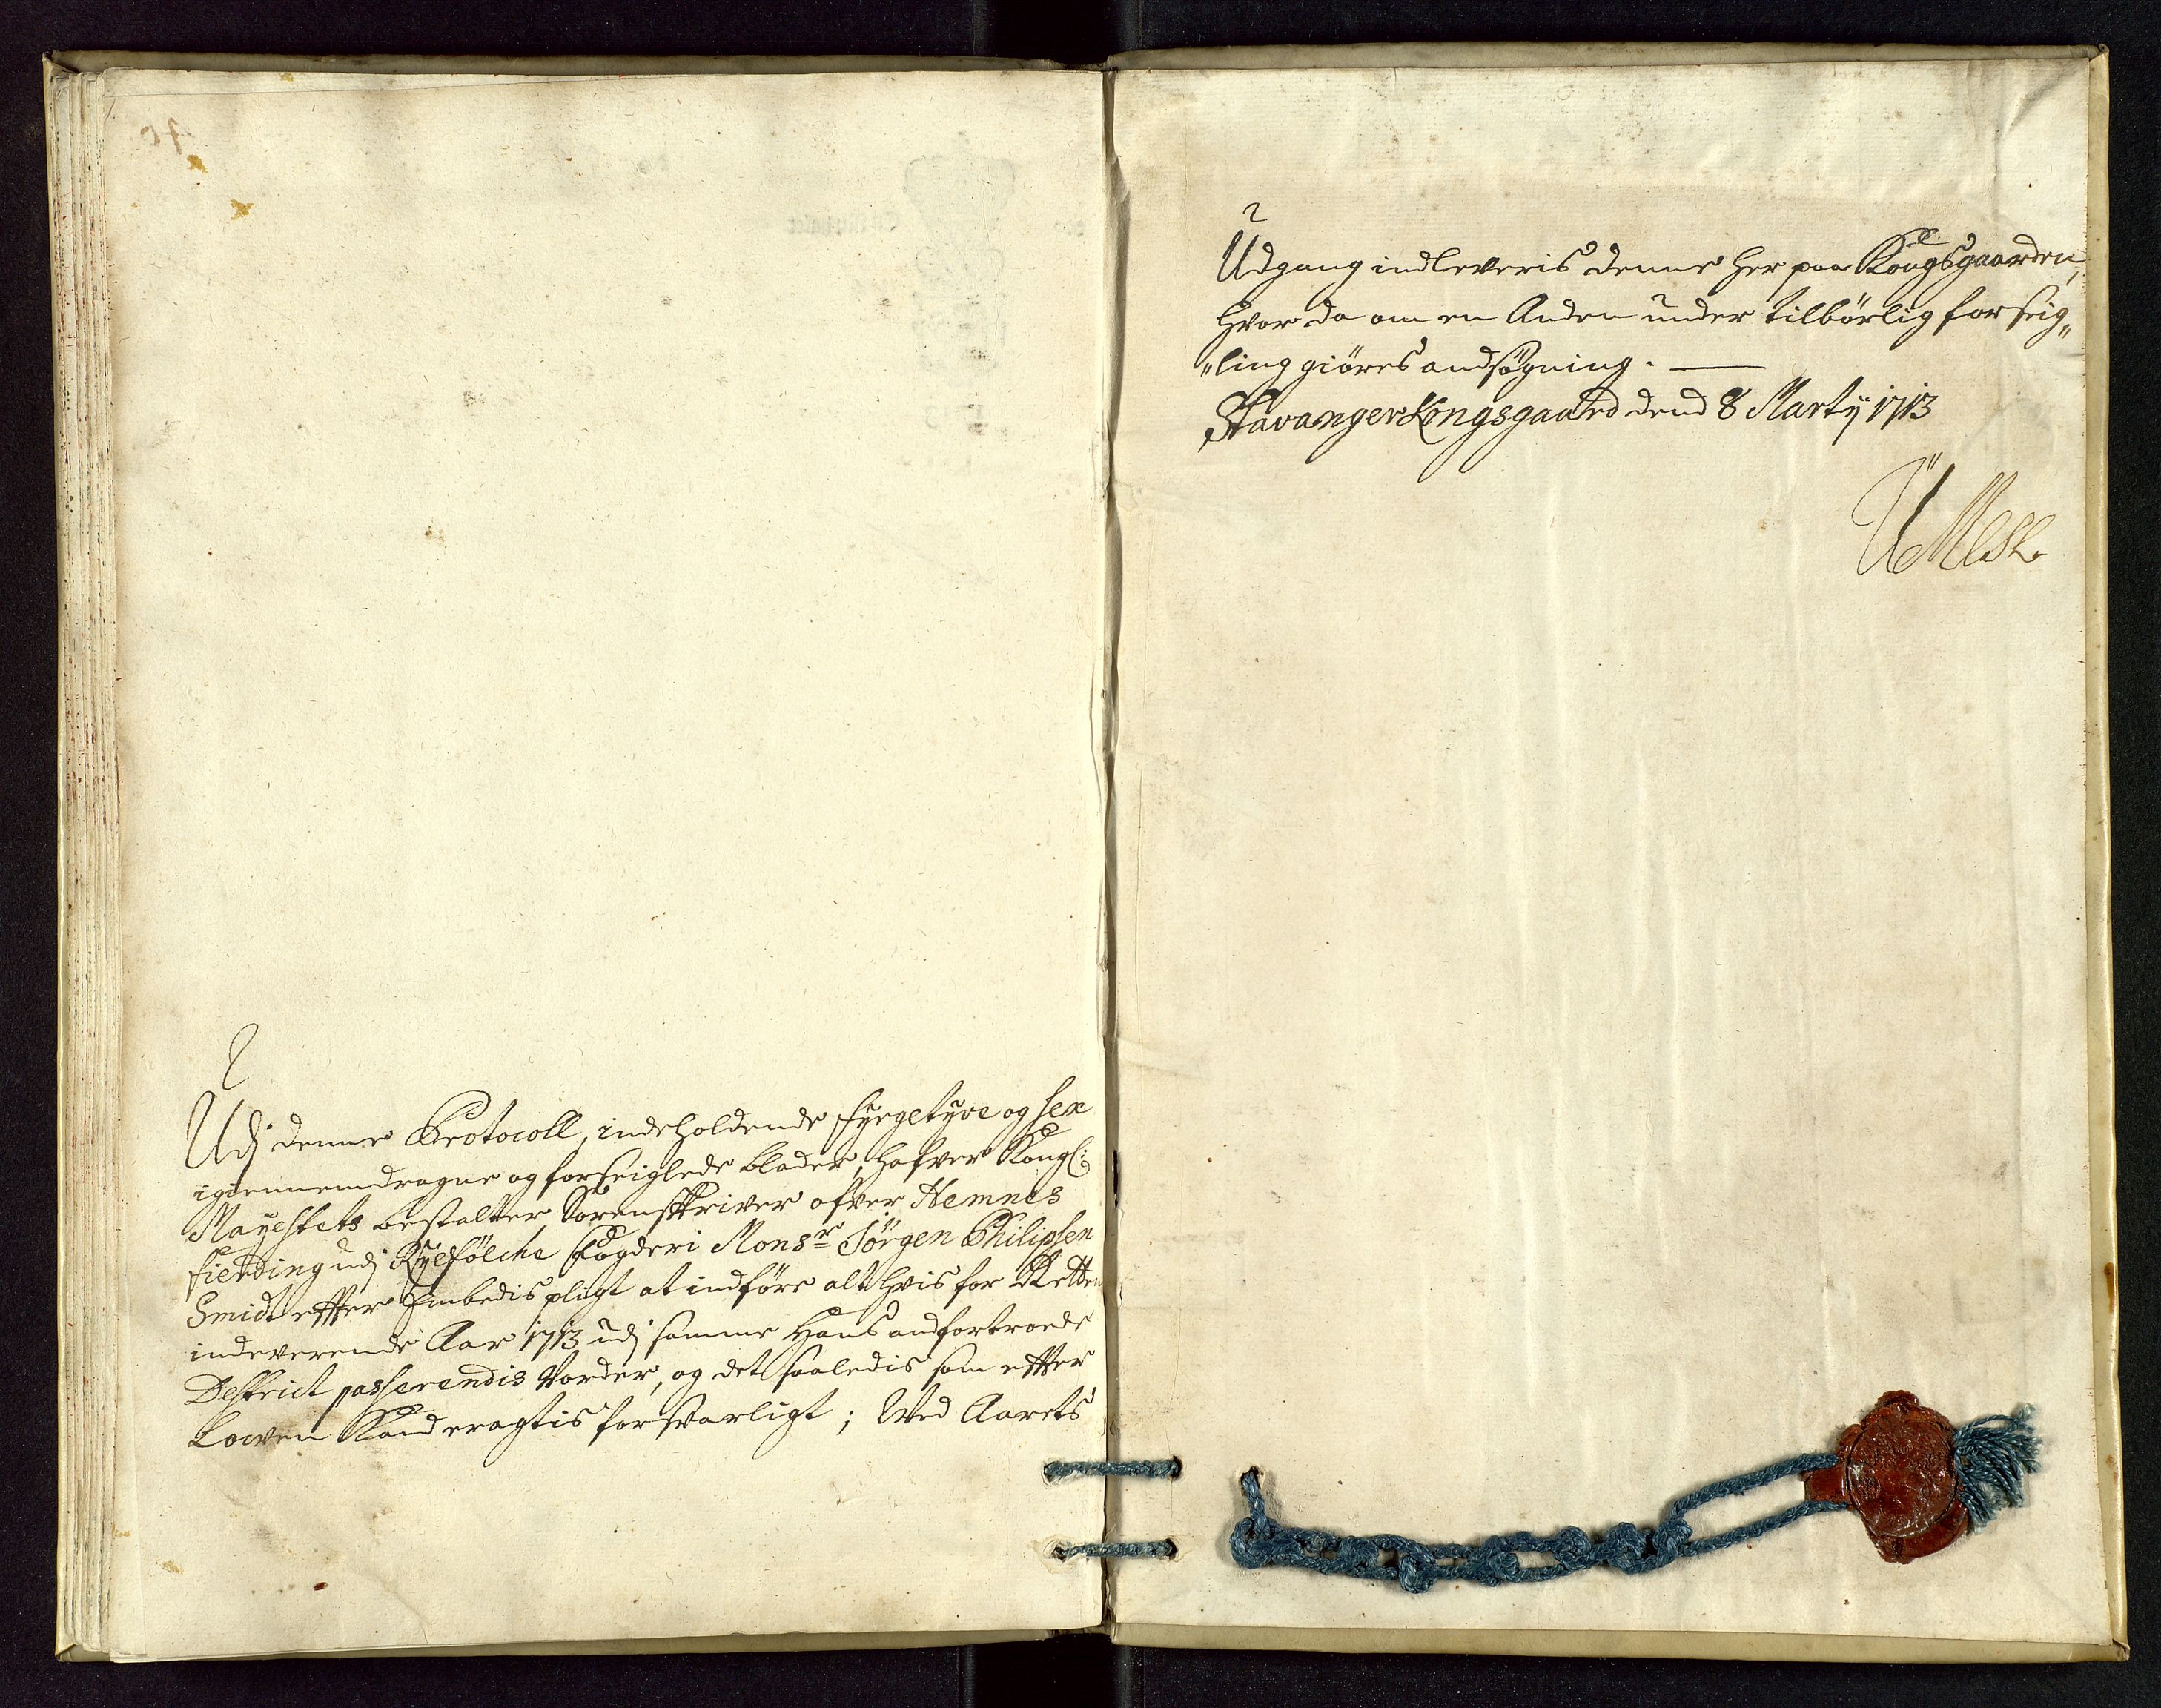 Udj denne Protocoll, indeholdende fyrgetyve og sex
igiennemdragne og forseiglede blader, hafver Kongl:
Mayestets bestalter Sorenskriver ofver Hemnes
fierding udj Ryefölche fogderi Monsr Jörgen Philipsen
Smidt efter Embedis pligt at indföre alt hvis for Retten
indeverende Aar 1713 udj samme Hans andfortroede
Destrict passerendis vorder, og det saaledis som efter
Lowen Kand eragtis forsvarligt; Ved Aarets
Udgang indleveris denne her paa Kongsgaarden,
hvor da om en Anden under tilbörlig forseig„
„ling giöres andsögning.
Stavanger Kongsgaard dend 8 Martij 1713